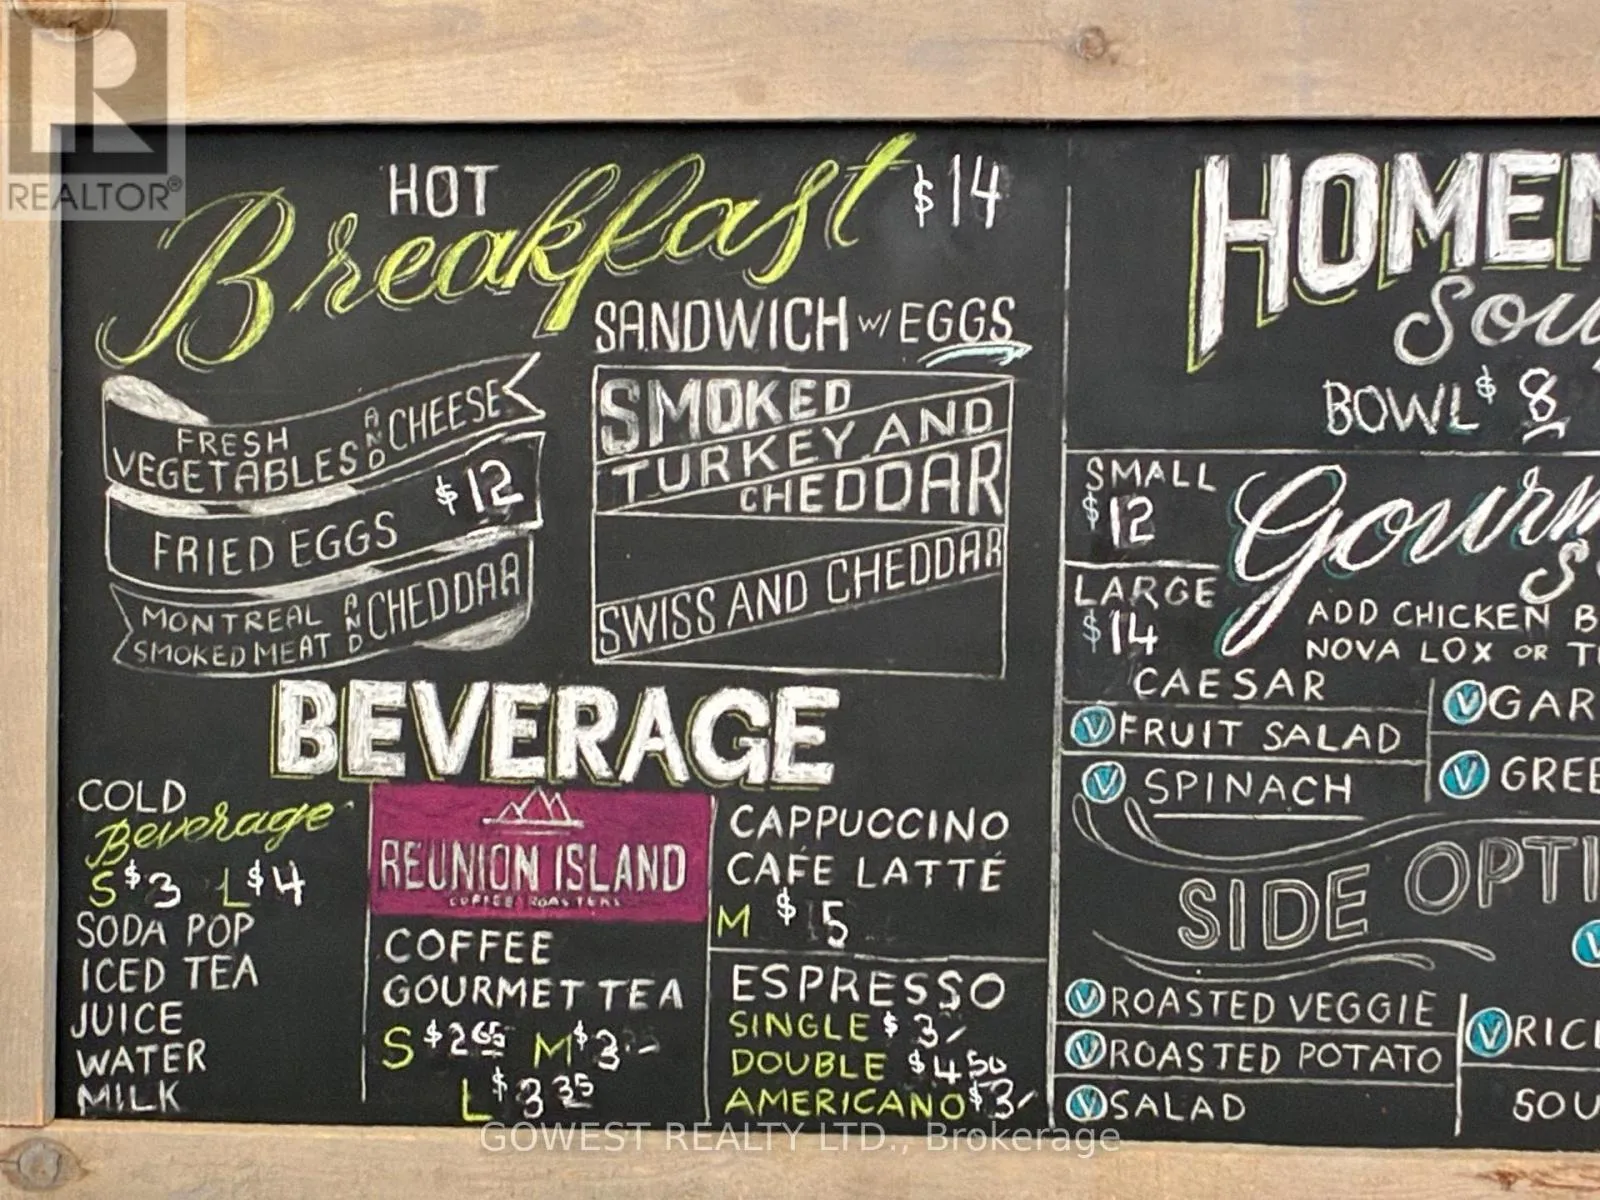 REALTOR®
HOT
Breakfast $14
SANDWICH W/ EGGS
FRESH
VEGETABLES AND CHEESE
$12
FRIED EGGS
MONTREAL
SMOKED MEAT AND CHEDDAR
SMOKED
TURKEY AND
CHEDDAR
SWISS AND CHEDDAR
BEVERAGE
COLD
Beverage
S $3 L $4
SODA POP
ICED TEA
JUICE
WATER
MILK
REUNION ISLAND
COFFEE ROASTERS
COFFEE
GOURMET TEA
S $2.65 M $3.-
L $3.35
CAPPUCCINO
CAFÉ LATTÉ
M $5
ESPRESSO
SINGLE $3/
DOUBLE $4.50
AMERICANO $3/
BOWL $8
SMALL
$12
LARGE
$14
ADD CHICKEN
NOVA LOX OR
CAESAR
V FRUIT SALAD
V SPINACH
SIDE
V ROASTED VEGGIE
V ROASTED POTATO
V SALAD
GOWEST REALTY LTD., Brokerage